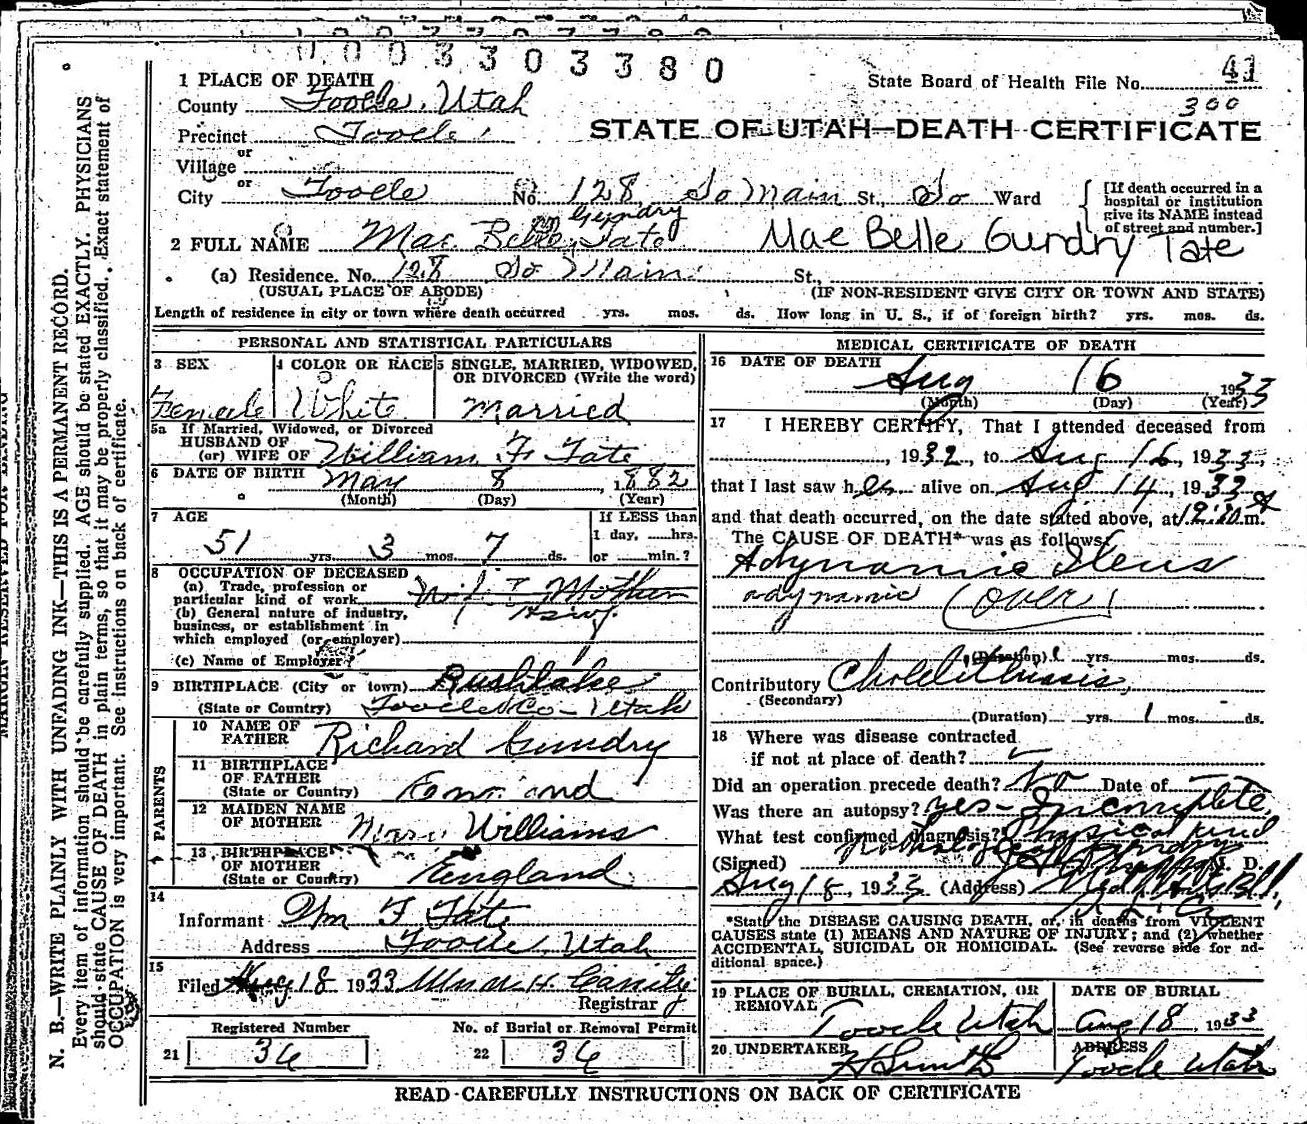 0003303380
1 PLACE OF DEATH
State Board of Health File No. 41
300
County Tooele, Utah
Precinct Tooele
STATE OF UTAH—DEATH CERTIFICATE
or
Village
or
City Tooele No. 128 So Main St., So Ward
[If death occurred in a hospital or institution give its NAME instead of street and number.]
Gundry
2 FULL NAME Mae Belle Tate Mae Belle Gundry Tate
(a) Residence. No. 128 So Main St.,
(USUAL PLACE OF ABODE) (IF NON-RESIDENT GIVE CITY OR TOWN AND STATE)
Length of residence in city or town where death occurred yrs. mos. ds. How long in U. S., if of foreign birth? yrs. mos. ds.
PERSONAL AND STATISTICAL PARTICULARS
3 SEX
Female
4 COLOR OR RACE
White
5 SINGLE, MARRIED, WIDOWED, OR DIVORCED (Write the word)
Married
5a If Married, Widowed, or Divorced
HUSBAND OF
(or) WIFE OF William F Tate
6 DATE OF BIRTH May 8, 1882
(Month) (Day) (Year)
7 AGE
51 yrs. 3 mos. 7 ds.
If LESS than
1 day, hrs.
or min.?
8 OCCUPATION OF DECEASED
(a) Trade, profession or
particular kind of work Mother
(b) General nature of industry,
business, or establishment in
which employed (or employer)
Hswf
(c) Name of Employer
9 BIRTHPLACE (City or town) Rushlake
(State or Country) Tooele Co - Utah
PARENTS
10 NAME OF FATHER Richard Gundry
11 BIRTHPLACE OF FATHER
(State or Country) England
12 MAIDEN NAME OF MOTHER Mary Williams
13 BIRTHPLACE OF MOTHER
(State or Country) England
14
Informant Wm F Tate
Address Tooele, Utah
15
Filed Aug 18 1933
Registrar
Registered Number
21 36
No. of Burial or Removal Permit
22 36
MEDICAL CERTIFICATE OF DEATH
16 DATE OF DEATH
Aug 16 1933
(Month) (Day) (Year)
17 I HEREBY CERTIFY, That I attended deceased from
, 1932, to Aug 16, 1933,
that I last saw her alive on Aug 14, 1933
and that death occurred, on the date stated above, at m.
The CAUSE OF DEATH* was as follows:
Adynamic Ileus
adynamic (over)
(Duration) yrs. mos. ds.
Contributory Cholelithiasis
(Secondary)
(Duration) yrs. 1 mos. ds.
18 Where was disease contracted
if not at place of death?
Did an operation precede death? No Date of
Was there an autopsy? yes - Incomplete
What test confirmed diagnosis? Physical and
(Signed) M. D.
Aug 18, 1933 (Address)
*State the DISEASE CAUSING DEATH, or, in deaths from VIOLENT
CAUSES state (1) MEANS AND NATURE OF INJURY; and (2) whether
ACCIDENTAL, SUICIDAL OR HOMICIDAL. (See reverse side for ad-
ditional space.)
19 PLACE OF BURIAL, CREMATION, OR REMOVAL
Tooele Utah
DATE OF BURIAL
Aug 18, 1933
20 UNDERTAKER
ADDRESS
Tooele Utah
READ CAREFULLY INSTRUCTIONS ON BACK OF CERTIFICATE
N. B.—WRITE PLAINLY WITH UNFADING INK—THIS IS A PERMANENT RECORD.
Every item of information should be carefully supplied. AGE should be stated EXACTLY. PHYSICIANS
should state CAUSE OF DEATH in plain terms, so that it may be properly classified. Exact statement of
OCCUPATION is very important. See instructions on back of certificate.
MARGIN RESERVED FOR BINDING